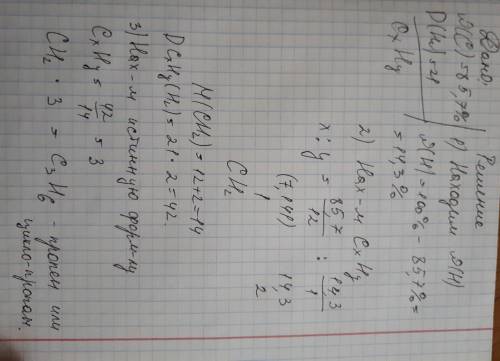 Дано:
ω(C) = 85,7%
D(H₂) = 21
CxHy
Решение
1) Находим ω(H)
ω(H) = 100% - 85,7% =
= 14,3%
2) Нах-м CxHy
x : y = 85,7/12 : 14,3/1
(7,141) 14,3
1 2
CH₂
M(CH₂) = 12+2=14
D CxHy(H₂) = 21 · 2 = 42.
3) Нах-м истинную форм-лу
CxHy = 42/14 = 3
CH₂ · 3 = C₃H₆ - пропен или
цикло-пропан.